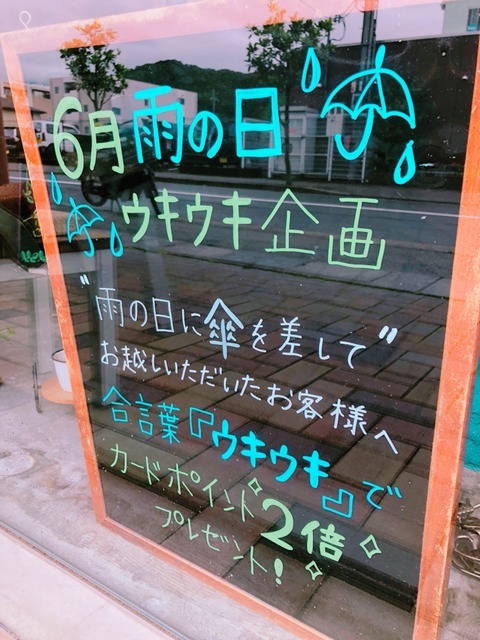 6月雨の日
ウキウキ企画
"雨の日に傘を差して"
お越しいただいたお客様へ
合言葉『ウキウキ』で
カードポイント2倍
プレゼント!